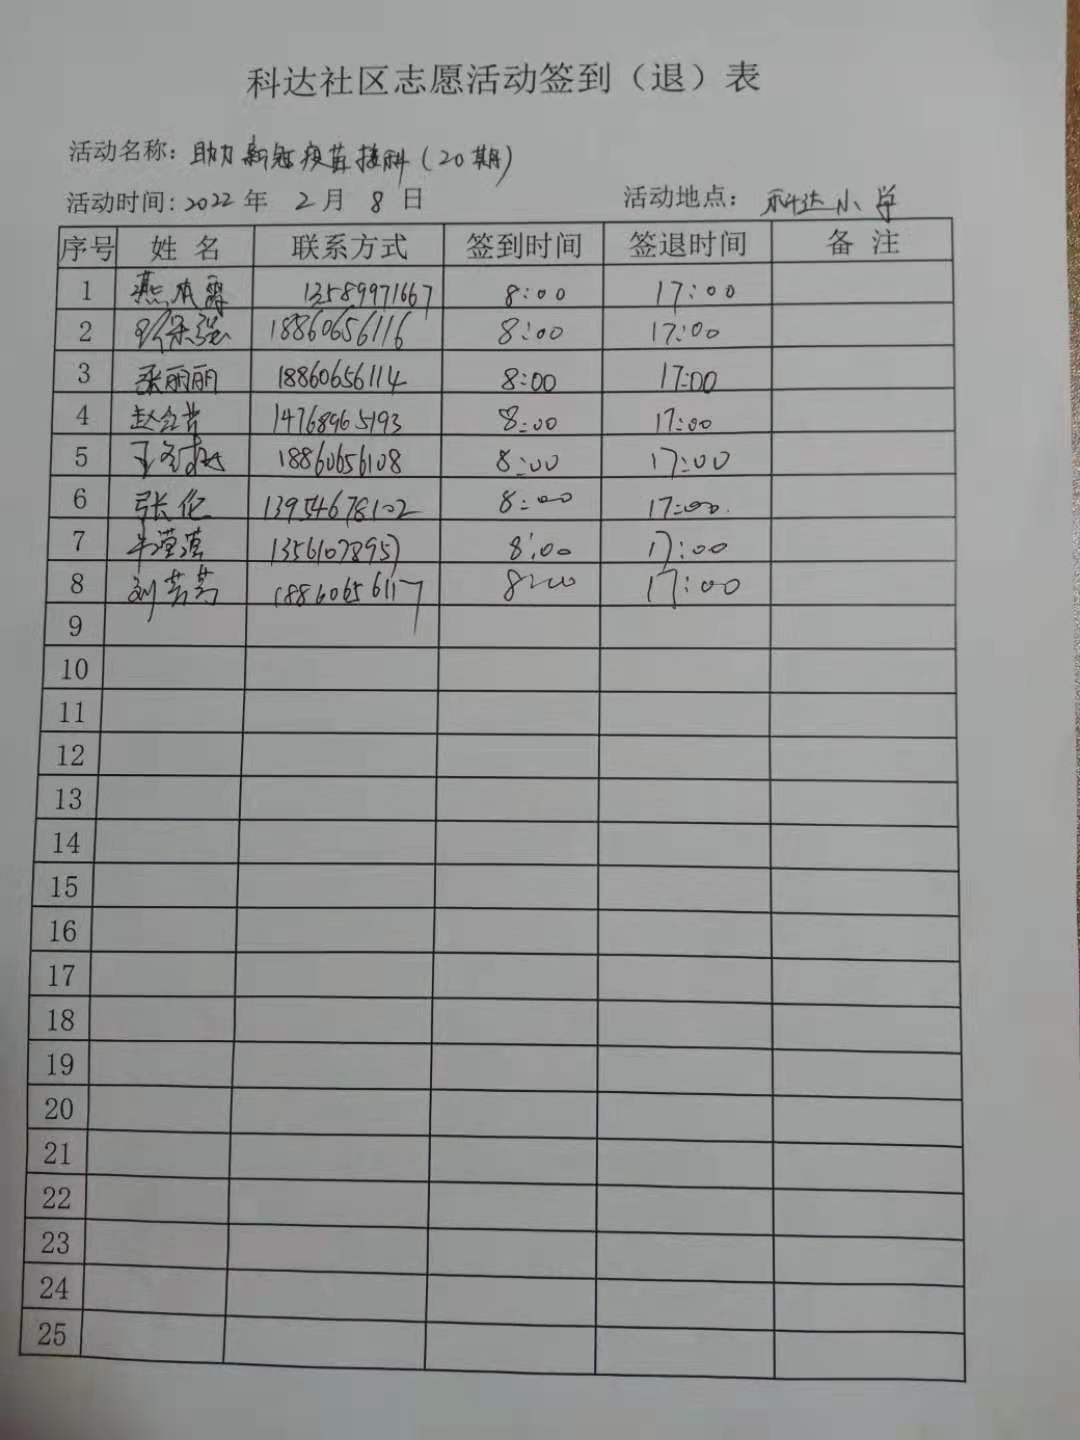 科达社区志愿活动签到（退）表
活动名称：助力新冠疫苗接种（20期）
活动时间：2022年 2月 8日 活动地点：科达小学
序号 姓名 联系方式 签到时间 签退时间 备注
1 13589971667 8:00 17:00
2 18860656116 8:00 17:00
3 张丽丽 18860656114 8:00 17:00
4 14768965193 8:00 17:00
5 18860656108 8:00 17:00
6 张伦 13954678102 8:00 17:00
7 13561078957 8:00 17:00
8 刘芳芳 18860656117 8:00 17:00
9
10
11
12
13
14
15
16
17
18
19
20
21
22
23
24
25